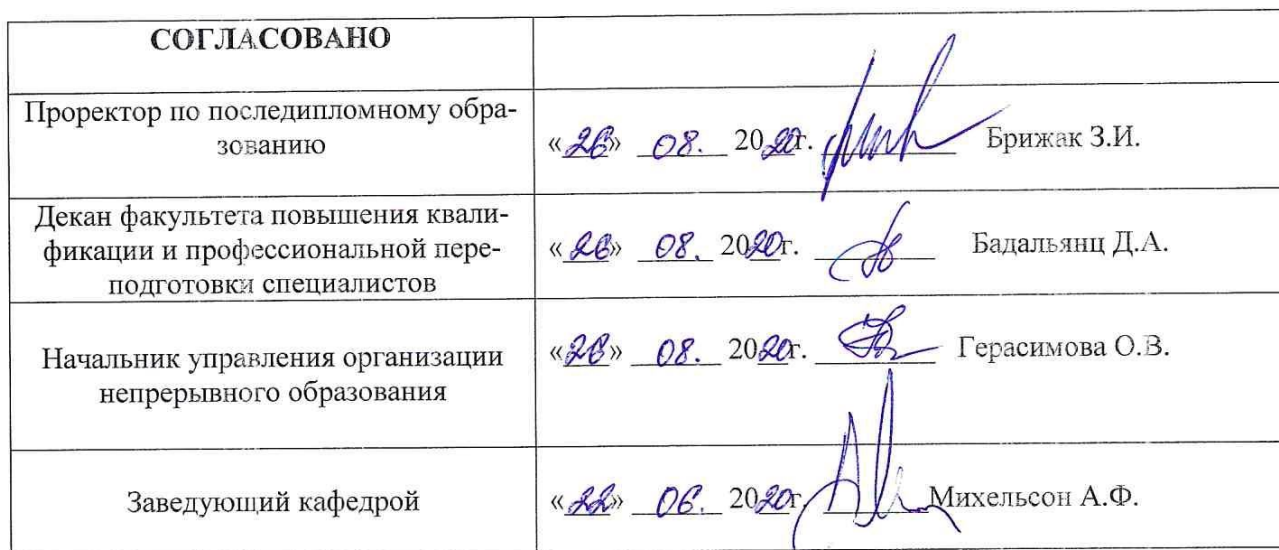 СОГЛАСОВАНО
Проректор по последипломному обра-
зованию
«26» 08. 2020г. Брижак З.И.
Декан факультета повышения квали-
фикации и профессиональной пере-
подготовки специалистов
«26» 08. 2020г. Бадальянц Д.А.
Начальник управления организации
непрерывного образования
«26» 08. 2020г. Герасимова О.В.
Заведующий кафедрой
«22» 06. 2020г. Михельсон А.Ф.